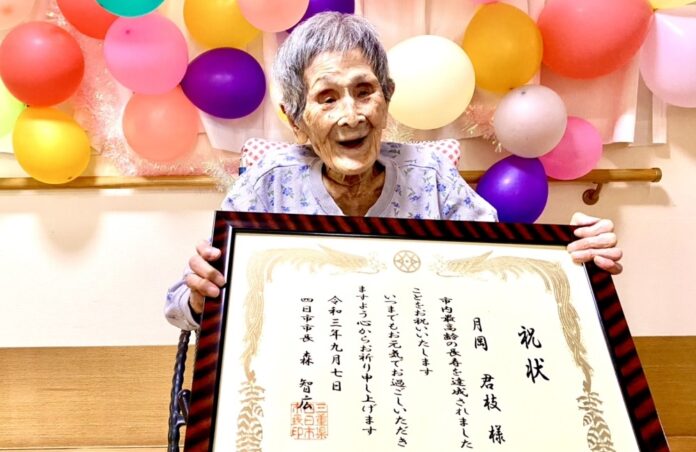 祝状
月岡 君枝 様
市内最高齢の長寿を達成されました
ことをお祝いいたします
いつまでもお元気でお過ごしいただき
ますよう心からお祈り申し上げます
令和三年九月七日
四日市市長 森 智広
三重県
四日市
市長印